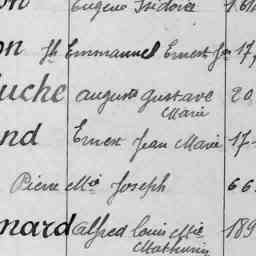 on Eugène Isidore 16
on fs Emmanuel Ernest 17,
uche auguste gustave 20,
Marie
nd Ernest Jean Marie 17-
Pierre Mie Joseph 66
nard alfred louis Mie 189
Mathurin